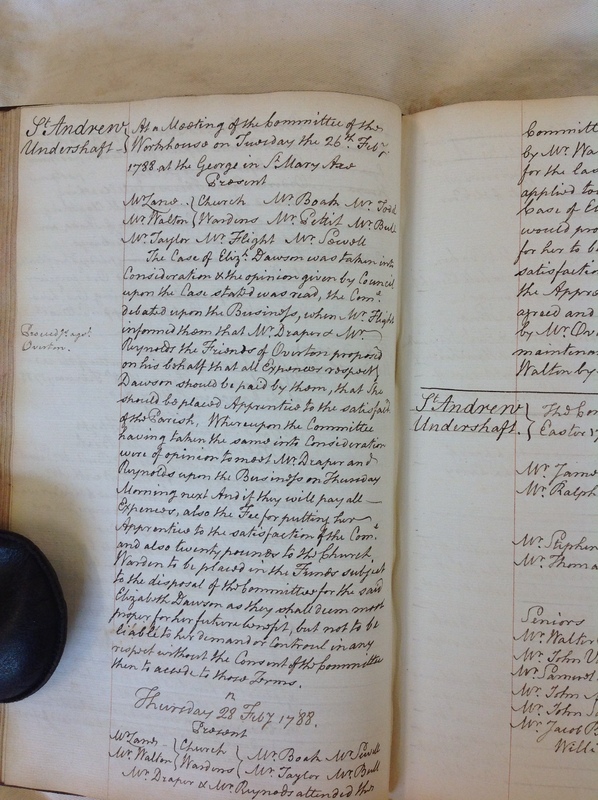 St. Andrew
Undershaft
At a Meeting of the Committee of the
Workhouse on Tuesday the 26th. Feby.
1788 at the George in St. Mary Axe
Present
Mr Lane Church Mr. Boak Mr. Todd
Mr. Walton Wardens Mr. Pettit Mr. Bull
Mr. Taylor Mr. Flight Mr. Sewell
The Case of Elizth. Dawson was taken into
Consideration & the opinion given by Council
upon the Case stated was read, the Come.
debated upon the Business, when Mr. Flight
Proceedgs. agst.
Overton.
informed them that Mr. Draper & Mr.
Reynolds the Friends of Overton proposed
on his behalf that all Expences respectg
Dawson should be paid by them, that she
should be placed Apprentice to the satisfact
of the Parish, Whereupon the Committee
having taken the same into Consideration
were of opinion to meet Mr. Draper and
Reynolds upon the Business on Thursday
Morning next And if they will pay all
Expences, also the Fee for putting her
Apprentice to the satisfaction of the Come.
and also twenty pounds to the Church
Warden to be placed in the Funds subject
to the disposal of the Committee for the said
Elizabeth Dawson as they shall deem most
proper for her future benefit, but not to be
liable to her demand or Controul in any
respect without the Consent of the Committee
then to accede to those Terms.
Thursday 28 Feby. 1788.
Present
Mr Lane Church Mr. Boak Mr Sewell
Mr. Walton Wardens Mr. Taylor Mr. Bull
Mr. Draper & Mr. Reynods attended the
Committ
by Mr. Wa
for the las
applied to
Case of El
would pro
for her to b
satisfactio
the Appre
agreed and
by Mr. Ov
maintenan
Walton by
St. Andrew
Undershaft.
The Co
Easter 17
Mr. Jame
Mr. Ralph
Mr. Stephen
Mr. Thoma
Seniors
Mr. Walter
Mr. John
Mr. Samuel
Mr. John
Mr. John S
Mr. Jacob
Willi